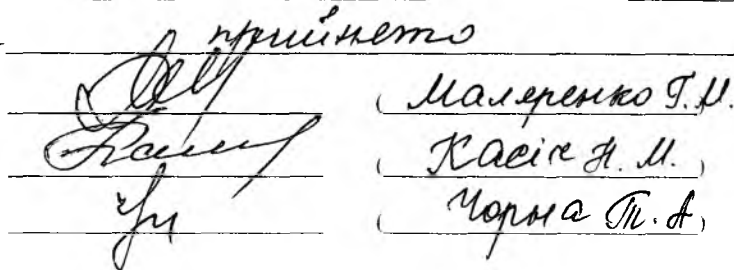 прийнято
( Маляренко Г.М.
( Касіч Н. М. )
( Чорна Т. А )